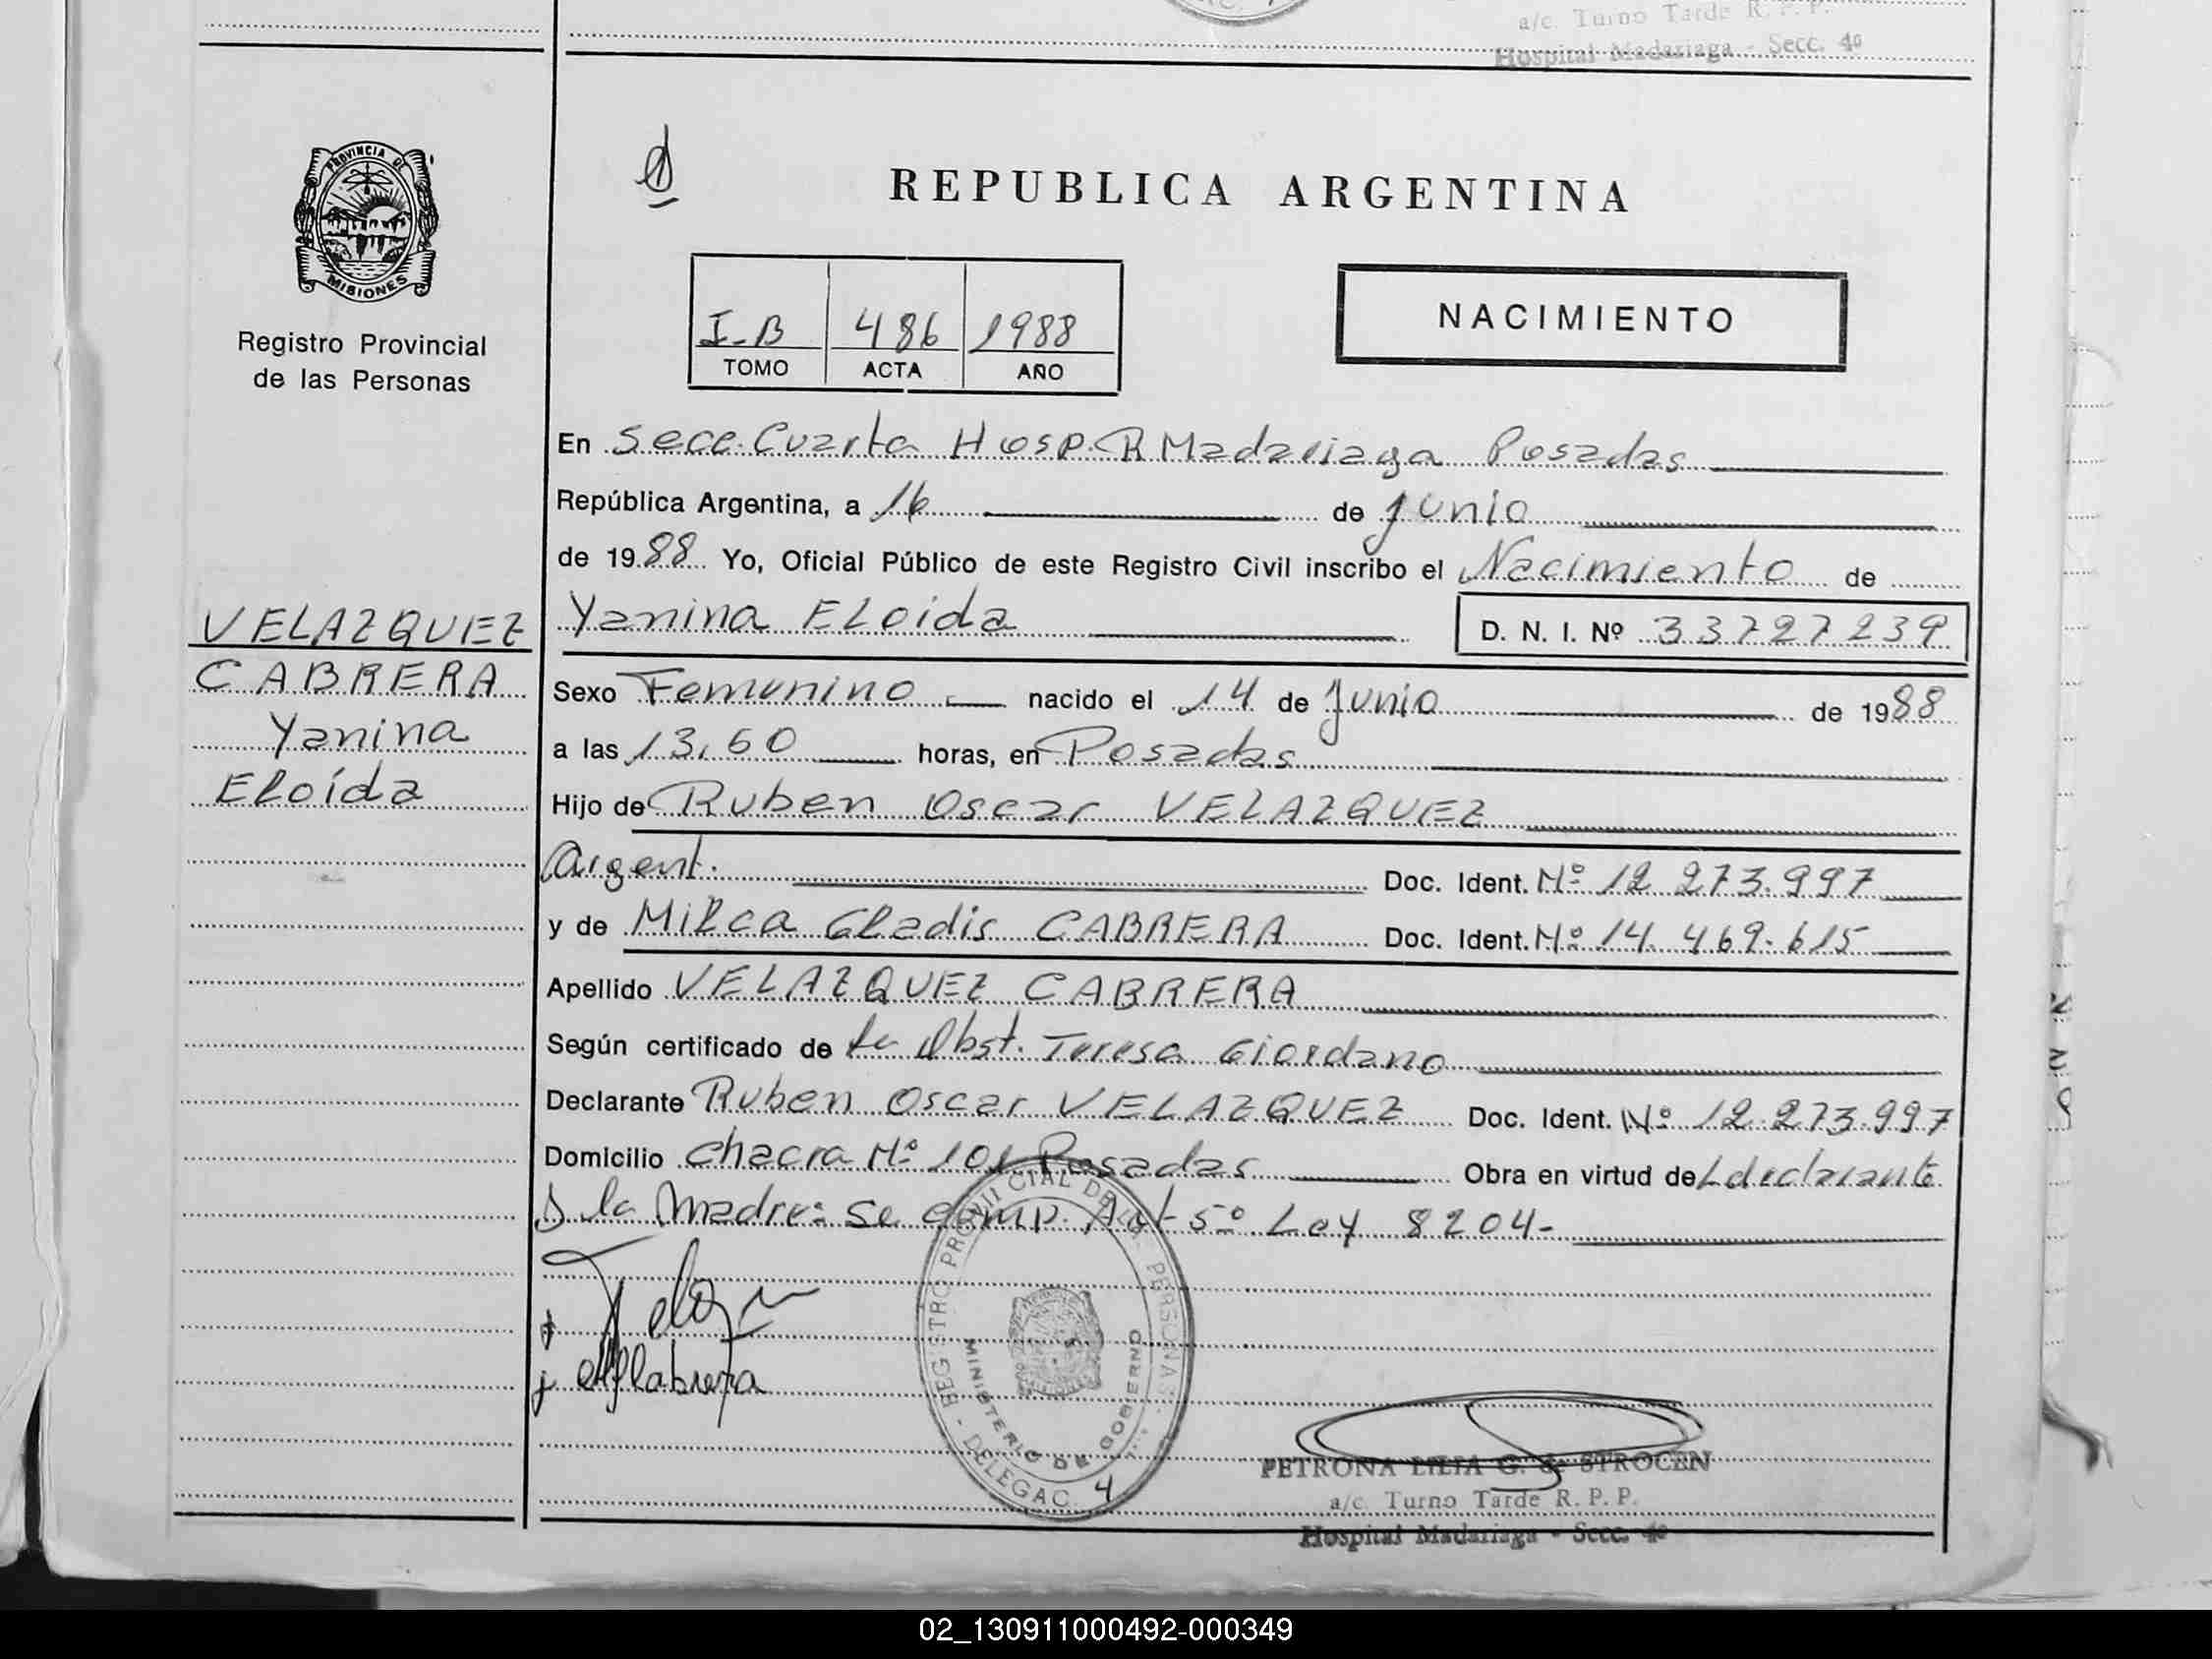 a/c. Turno Tarde R. P. P.
Hospital Madariaga - Secc. 4º
PROVINCIA DE
MISIONES
Registro Provincial
de las Personas
REPUBLICA ARGENTINA
I-B 486 1988
TOMO ACTA AÑO
NACIMIENTO
VELAZQUEZ
CABRERA
Yanina
Eloída
En Secc. Cuarta Hosp. R Madariaga Posadas
República Argentina, a 16 de junio
de 1988 Yo, Oficial Público de este Registro Civil inscribo el Nacimiento de
Yanina ELoida D. N. I. Nº 33727239
Sexo Femenino nacido el 14 de Junio de 1988
a las 13,50 horas, en Posadas
Hijo de Ruben Oscar VELAZQUEZ
Argent. Doc. Ident. Nº 12 273.997
y de Milca Gladis CABRERA Doc. Ident. Nº 14.469.615
Apellido VELAZQUEZ CABRERA
Según certificado de la Obst. Teresa Giordano
Declarante Ruben Oscar VELAZQUEZ Doc. Ident. Nº 12.273.997
Domicilio Chacra Nº 101 Posadas Obra en virtud de L declarante
la Madre: se comp. Art 5º Ley 8204-
Cabrera
REGISTRO PROVINCIAL DE LAS PERSONAS
MINISTERIO DE GOBIERNO
DELEGAC. 4
PETRONA LILIA G. de STROCEN
a/c. Turno Tarde R. P. P.
Hospital Madariaga - Secc. 4º
02_130911000492-000349